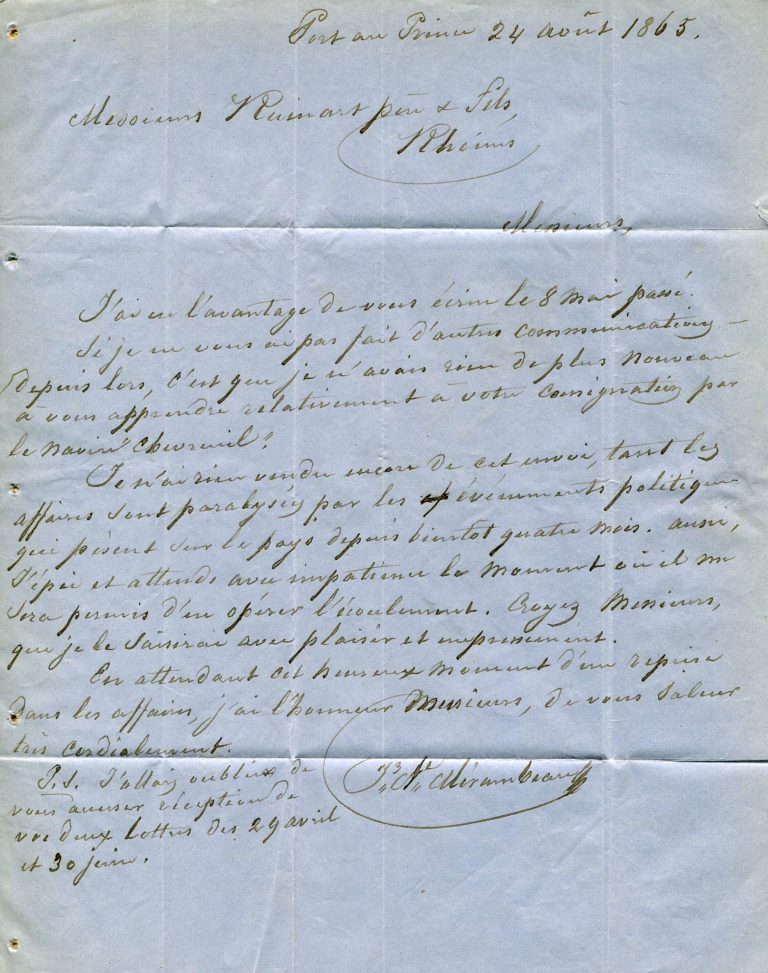 Port au Prince 24 août 1865.
Messieurs Ruinart père & fils,
Rheims
Messieurs,
J'ai eu l'avantage de vous écrire le 8 mai passé.
Si je ne vous ai pas fait d'autres communications
depuis lors, c'est que je n'avais rien de plus nouveau
à vous apprendre relativement à votre consignation par
le navire "Chevreuil".
Je n'ai rien vendu encore de cet envoi, tant les
affaires sont paralysées par les événements politiques
qui pèsent sur le pays depuis bientot quatre mois. aussi,
J'épie et attends avec impatience le moment où il me
sera permis d'en opérer l'écoulement. Croyez Messieurs,
que je le saisirai avec plaisir et empressement.
En attendant cet heureux moment d'une reprise
dans les affaires, j'ai l'honneur Messieurs, de vous saluer
très cordialement.
Mirambeau
P.S. J'allais oublier de
vous accuser réception de
vos deux lettres des 29 avril
et 30 juin.